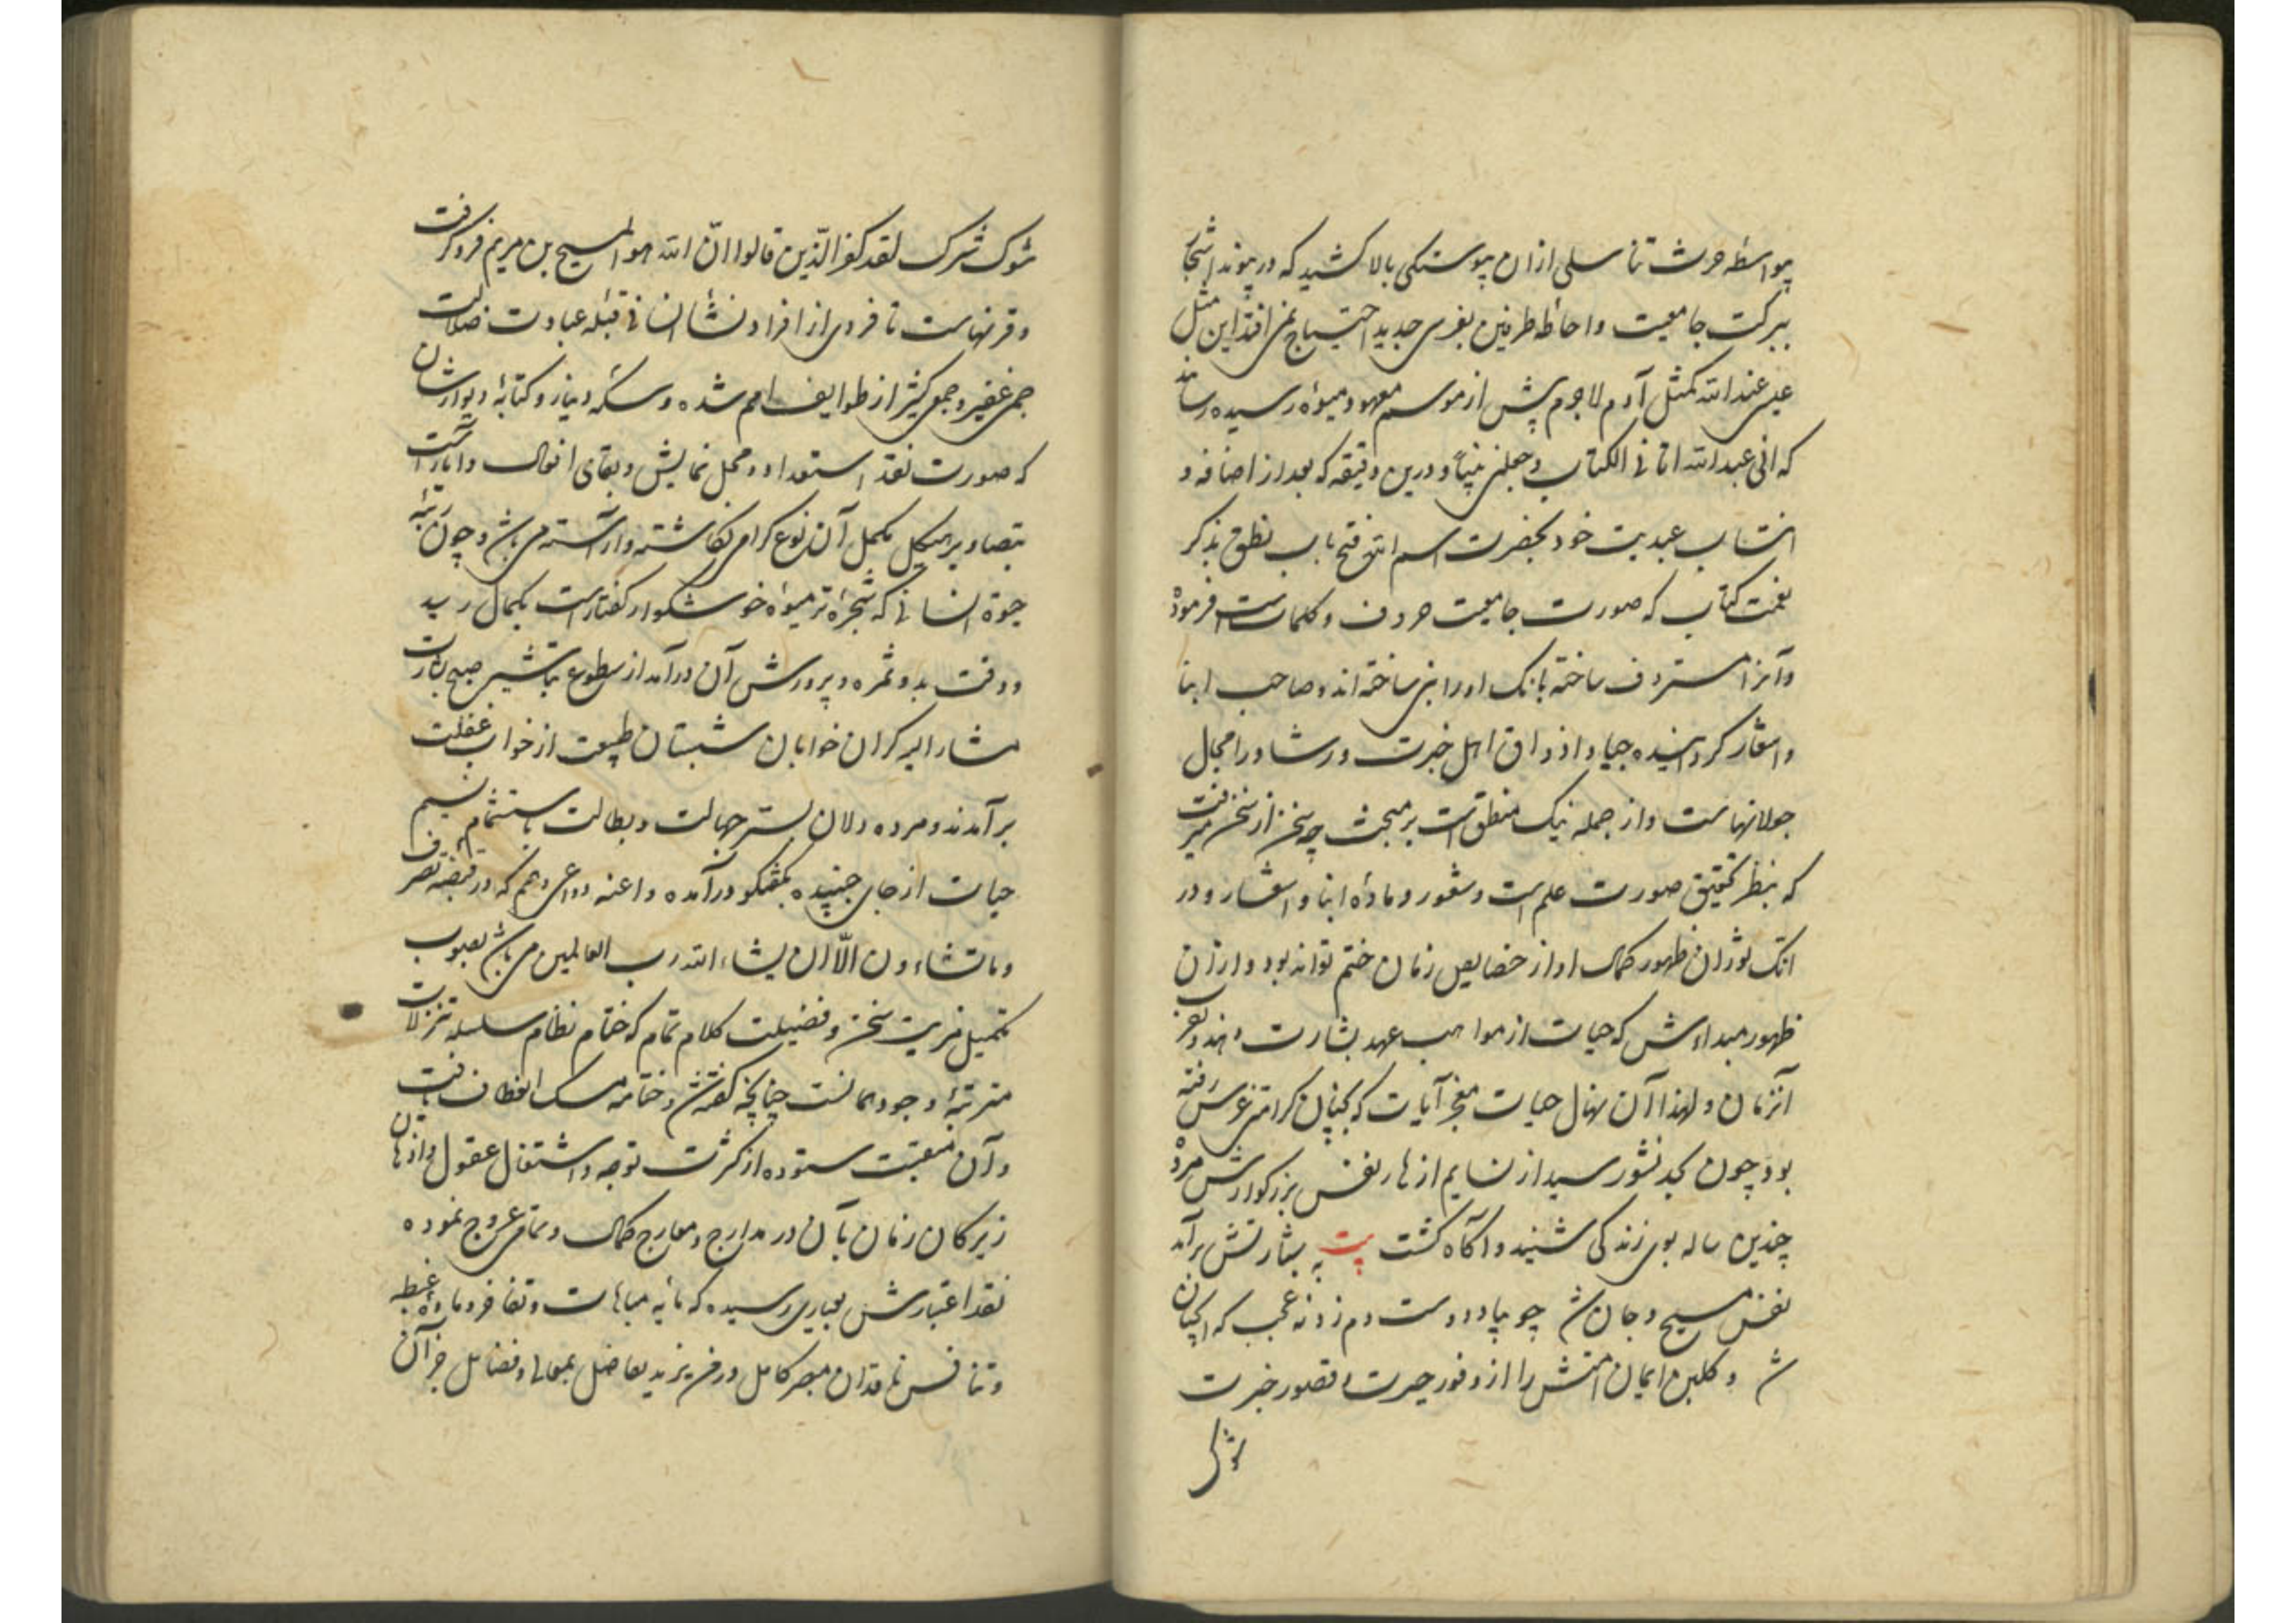 بواسطه حرث تناسلی ازان پیوستگی بالا کشید که در پیوند اشجار
ببرکت جامعیت و احاطه طرفین بغرس جدید احتیاج نمی افتد ان مثل
عیسی عند الله کمثل آدم لاجرم پیش از موسم معهود میوه رسیده رساند
که انی عبد الله اتانی الکتاب وجعلنی نبیا و درین دقیقه که بعد از اضافه و
انتساب عبدیت خود بحضرت اسم الله فتح باب نطق بذکر
نعمت کتاب که صورت جامعیت حروف و کلماتست فرموده
و آنرا مستردف ساخته بانک اورا نبی ساخته اند و صاحب انبا
و اشعار گردانیده جیاد اذواق اهل خبرت و رشاد را مجال
جولانهاست و از جمله نیک منطق است بر مبحث چه سخن از سخن میرفت
که بنظر تحقیق صورت علم است و شعور و ماده انبا و اشعار و در
انک نوران ظهور کمال او از خصایص زمان ختم تواند بود و ازان
ظهور مبداءش که حیات از مواهب عهد بشارت
آنزمان و لهذا آن نهال حیات معجز آیات که کرامتی غرس رفته
بود چون بحد نشو رسید از نسایم ازهار نفس بزرگوارش مرده
چندین ساله بوی زندگی شنید و آگاه گشت بیت به بشارتش برآمد
نفس مسیح و جان شد چو بیاد دوست دم زد نه عجب که
شد و گلبن ایمان امتش را از وفور حیرت و قصور خبرت
شوک شرک لقد کفر الذین قالوا ان الله هو المسیح بن مریم فرو گرفت
و قرنهاست تا فردی از افراد نشاء انسانی قبله عبادت ضلالت
جمی غفیر و جمع کثیر از طوایف امم شده و سکه دینار و کتابه دیوارشان
که صورت نقد استعداد و محل نمایش و بقای افعال و اثارست
بتصاویر هیکل مکمل آن نوع گرامی نگاشته و آراسته می باشد و چون رتبه
حیوة انسانی که شجره ترمیوه خوشگوار گفتارست بکمال رسید
و وقت بدو ثمره و پرورش آن درآمد از سطوع تباشیر صبح بشارت
مشار الیه گران خوابان شبستان طبیعت از خواب غفلت
برآمدند و مرده دلان بستر جهالت و بطالت باستشمام نسیم
حیات از جای جنبیده بگفتگو درآمده و اعنه دواعی و همم که در قبضه تصرف
وما تشاءون الا ان یشاء الله رب العالمین می باشد بصوب
تکمیل مزیت سخن و فضیلت کلام تمام که ختام نظام سلسله تنزلات
مترتبه وجود همانست چنانچه گفته شد و ختامه مسک انعطاف یافت
و آن منقبت ستوده از کثرت توجه و اشتغال عقول و اذهان
زیرکان زمان بآن در مدارج و معارج کمال و تمامی عروج نموده
نقد اعتبارش بعیاری رسیده که مایه مباهات و تفاخر و ماده غبطه
و تنافس ناقدان مبصر کامل و در من یزید تفاضل بمعالی و فضایل جز آن